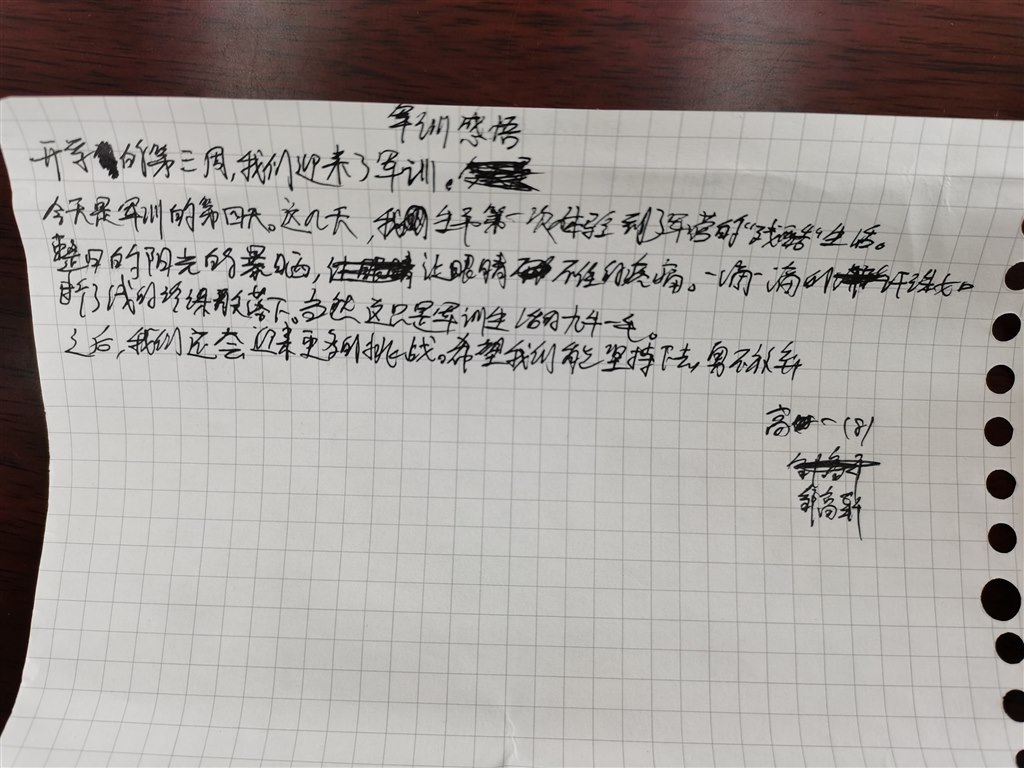 军训感悟
开学的第三周,我们迎来了军训。
今天是军训的第四天。这几天,我们生平第一次体验到了军营的"残酷"生活。
整日的阳光的暴晒,让眼睛不住的疼痛。一滴一滴的汗珠如
断了线的珍珠般落下。当然这只是军训生活的九牛一毛。
之后,我们还会迎来更多的挑战。希望我们能坚持下去,勇不放弃
高一(8)
高新